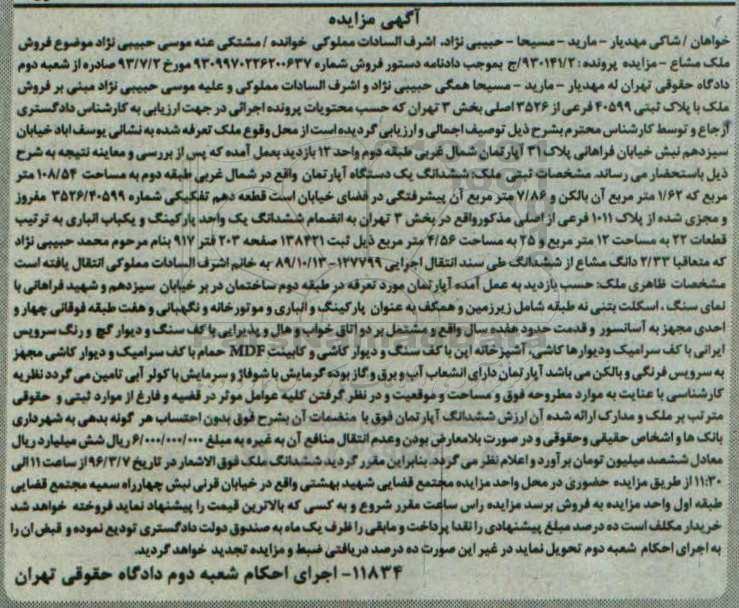 آگهی مزایده
خواهان / شاکی مهدیار - مارید - مسیحا - حبیبی نژاد، اشرف السادات مملوکی خوانده / مشتکی عنه موسی حبیبی نژاد موضوع فروش
ملک مشاع - مزایده پرونده : ۹۳۰۱۴۱/۲/ج بموجب دادنامه دستور فروش شماره ۹۳۰۹۹۷۰۲۲۶۲۰۰۶۳۷ مورخ ۹۳/۷/۲ صادره از شعبه دوم
دادگاه حقوقی تهران له مهدیار - مارید - مسیحا همگی حبیبی نژاد و اشرف السادات مملوکی و علیه موسی حبیبی نژاد مبنی بر فروش
ملک با پلاک ثبتی ۴۰۵۹۹ فرعی از ۳۵۲۶ اصلی بخش ۳ تهران که حسب محتویات پرونده اجرائی در جهت ارزیابی به کارشناس دادگستری
ارجاع و توسط کارشناس محترم بشرح ذیل توصیف اجمالی و ارزیابی گردیده است از محل وقوع ملک تعرفه شده به نشانی یوسف اباد خیابان
سیزدهم نبش خیابان فراهانی پلاک ۳۱ آپارتمان شمال غربی طبقه دوم واحد ۱۲ بازدید بعمل آمده که پس از بررسی و معاینه نتیجه به شرح
ذیل باستحضار می رساند. مشخصات ثبتی ملک: ششدانگ یک دستگاه آپارتمان واقع در شمال غربی طبقه دوم به مساحت ۱۰۸/۵۴ متر
مربع که ۱/۶۲ متر مربع آن بالکن و ۷/۸۶ متر مربع آن پیشرفتگی در فضای خیابان است قطعه دهم تفکیکی شماره ۳۵۲۶/۴۰۵۹۹ مفروز
و مجزی شده از پلاک ۱۰۱۱ فرعی از اصلی مذکور واقع در بخش ۳ تهران به انضمام ششدانگ یک واحد پارکینگ و یکباب انباری به ترتیب
قطعات ۲۲ به مساحت ۱۲ متر مربع و ۲۵ به مساحت ۴/۵۶ متر مربع ذیل ثبت ۱۳۸۴۲۱ صفحه ۲۰۳ فتر ۹۱۷ بنام مرحوم محمد حبیبی نژاد
که متعاقبا ۲/۳۳ دانگ مشاع از ششدانگ طی سند انتقال اجرایی ۱۲۷۷۹۹-۸۹/۱۰/۱۳ به خانم اشرف السادات مملوکی انتقال یافته است
مشخصات ظاهری ملک: حسب بازدید به عمل آمده آپارتمان مورد تعرفه در طبقه دوم ساختمان در بر خیابان سیزدهم و شهید فراهانی با
نمای سنگ ، اسکلت بتنی نه طبقه شامل زیرزمین و همکف به عنوان پارکینگ و انباری و موتورخانه و نگهبانی و هفت طبقه فوقانی چهار و
احدی مجهز به آسانسور و قدمت حدود هفده سال واقع و مشتمل بر دو اتاق خواب و هال و پذیرایی با کف سنگ و دیوار گچ و رنگ سرویس
ایرانی با کف سرامیک و دیوارها کاشی، آشپزخانه اپن با کف سنگ و دیوار کاشی و کابینت MDF حمام با کف سرامیک و دیوار کاشی مجهز
به سرویس فرنگی و بالکن می باشد آپارتمان دارای انشعاب آب و برق و گاز بوده گرمایش با شوفاژ و سرمایش با کولر آبی تامین می گردد نظریه
کارشناسی با عنایت به موارد مطروحه فوق و مساحت و موقعیت و در نظر گرفتن کلیه عوامل موثر در قضیه و فارغ از موارد ثبتی و حقوقی
مترتب بر ملک و مدارک ارائه شده آن ارزش ششدانگ آپارتمان فوق با منضمات آن بشرح فوق بدون احتساب هر گونه بدهی به شهرداری
بانک ها و اشخاص حقیقی و حقوقی و در صورت بلامعارض بودن و عدم انتقال منافع آن به غیره به مبلغ ۶/۰۰۰/۰۰۰/۰۰۰ ریال شش میلیارد ریال
معادل ششصد میلیون تومان برآورد و اعلام نظر می گردد. بنابراین مقرر گردید ششدانگ ملک فوق الاشعار در تاریخ ۹۶/۳/۷ از ساعت ۱۱ الی
۱۱:۳۰ از طریق مزایده حضوری در محل واحد مزایده مجتمع قضایی شهید بهشتی واقع در خیابان قرنی نبش چهارراه سمیه مجتمع قضایی
طبقه اول واحد مزایده به فروش برسد مزایده راس ساعت مقرر شروع و به کسی که بالاترین قیمت را پیشنهاد نماید فروخته خواهد شد
خریدار مکلف است ده درصد مبلغ پیشنهادی را نقدا پرداخت و مابقی را ظرف یک ماه به صندوق دولت دادگستری تودیع نموده و قبض ان را
به اجرای احکام شعبه دوم تحویل نماید در غیر این صورت ده درصد دریافتی ضبط و مزایده تجدید خواهد گردید.
۱۱۸۳۴- اجرای احکام شعبه دوم دادگاه حقوقی تهران